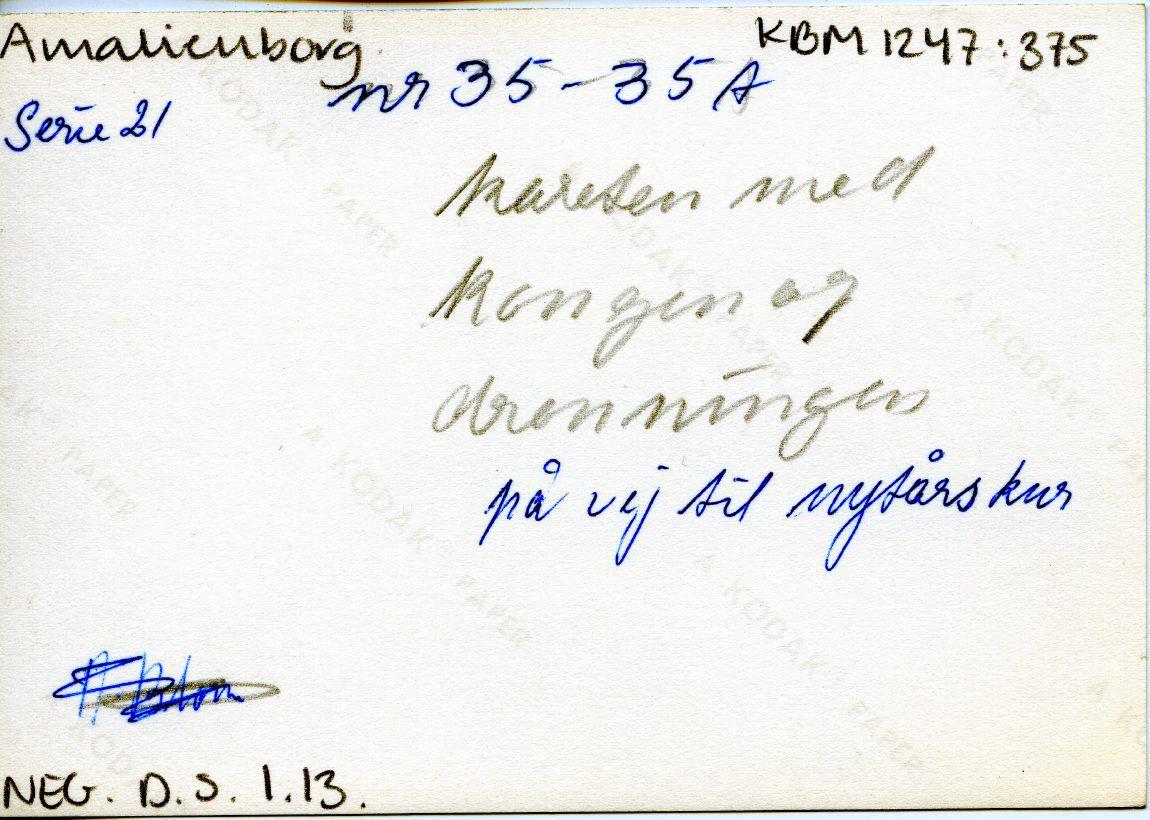 Amalienborg
KBM 1247:375
nr 35-35A
Serie 21
kareten med
kongen og
dronningen
på vej til nytårskur
NEG. D.S. 1.13.